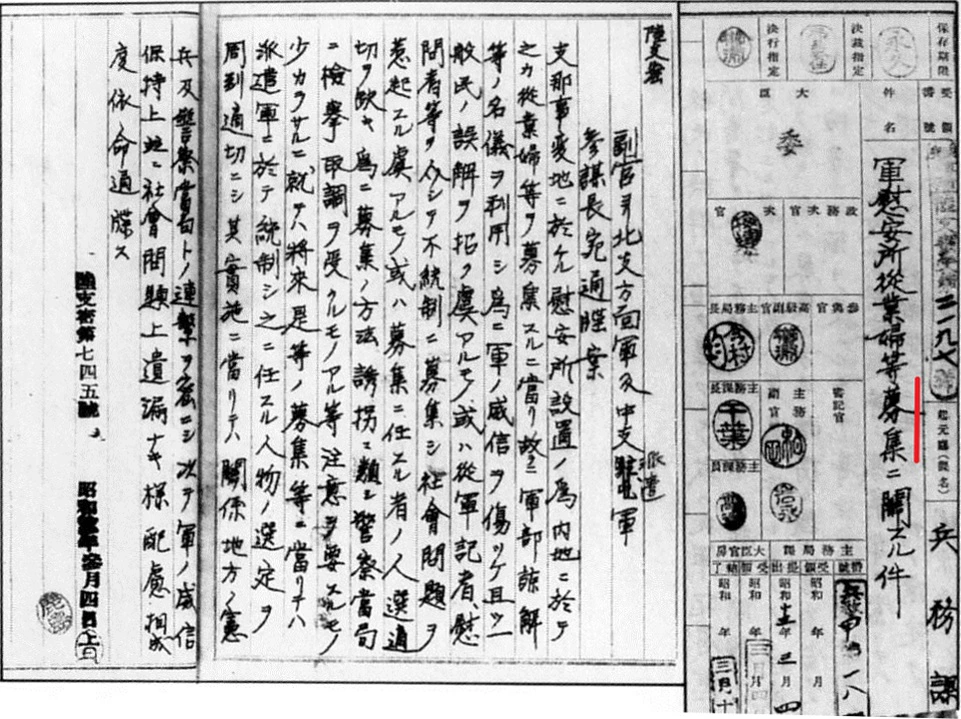 保存期限
永久
決裁指定
決行指定
受領番號
二一九七號
起元廳(課名)
兵務課
件名
軍慰安所從業婦等募集ニ關スル件
大臣
委
政務次官
次官
參與官
高級副官
主務局長
今村
主務副官
主務課長
書記官
主務課長
大臣官房
主務局課
昭和 年 月
昭和十三年三月四
昭和 年三月四
三月十
陸支密
副官ヨリ北支方面軍及中支派遣軍
參謀長宛通牒案
支那事變地ニ於ケル慰安所設置ノ爲内地ニ於テ
之カ從業婦等ヲ募集スルニ當リ故ラニ軍部諒解
等ノ名儀ヲ利用シ爲ニ軍ノ威信ヲ傷ツケ且ツ一
般民ノ誤解ヲ招ク虞アルモノ或ハ從軍記者、慰
問者等ヲ介シテ不統制ニ募集シ社會問題ヲ
惹起スル虞アルモノ或ハ募集ニ任スル者ノ人選適
切ヲ欠キ爲ニ募集ノ方法誘拐ニ類シ警察當局
ニ檢擧取調ヲ受クルモノアル等注意ヲ要スルモノ
少カラサルニ就テハ將來是等ノ募集等ニ當リテハ
派遣軍ニ於テ統制シ之ニ任スル人物ノ選定ヲ
周到適切ニシ其實施ニ當リテハ關係地方ノ憲
兵及警察當局トノ連繫ヲ密ニシ次テ軍ノ威信
保持上並ニ社會問題上遺漏ナキ樣配慮相成
度依命通牒ス
陸支密第七四五號
昭和拾參年參月四日